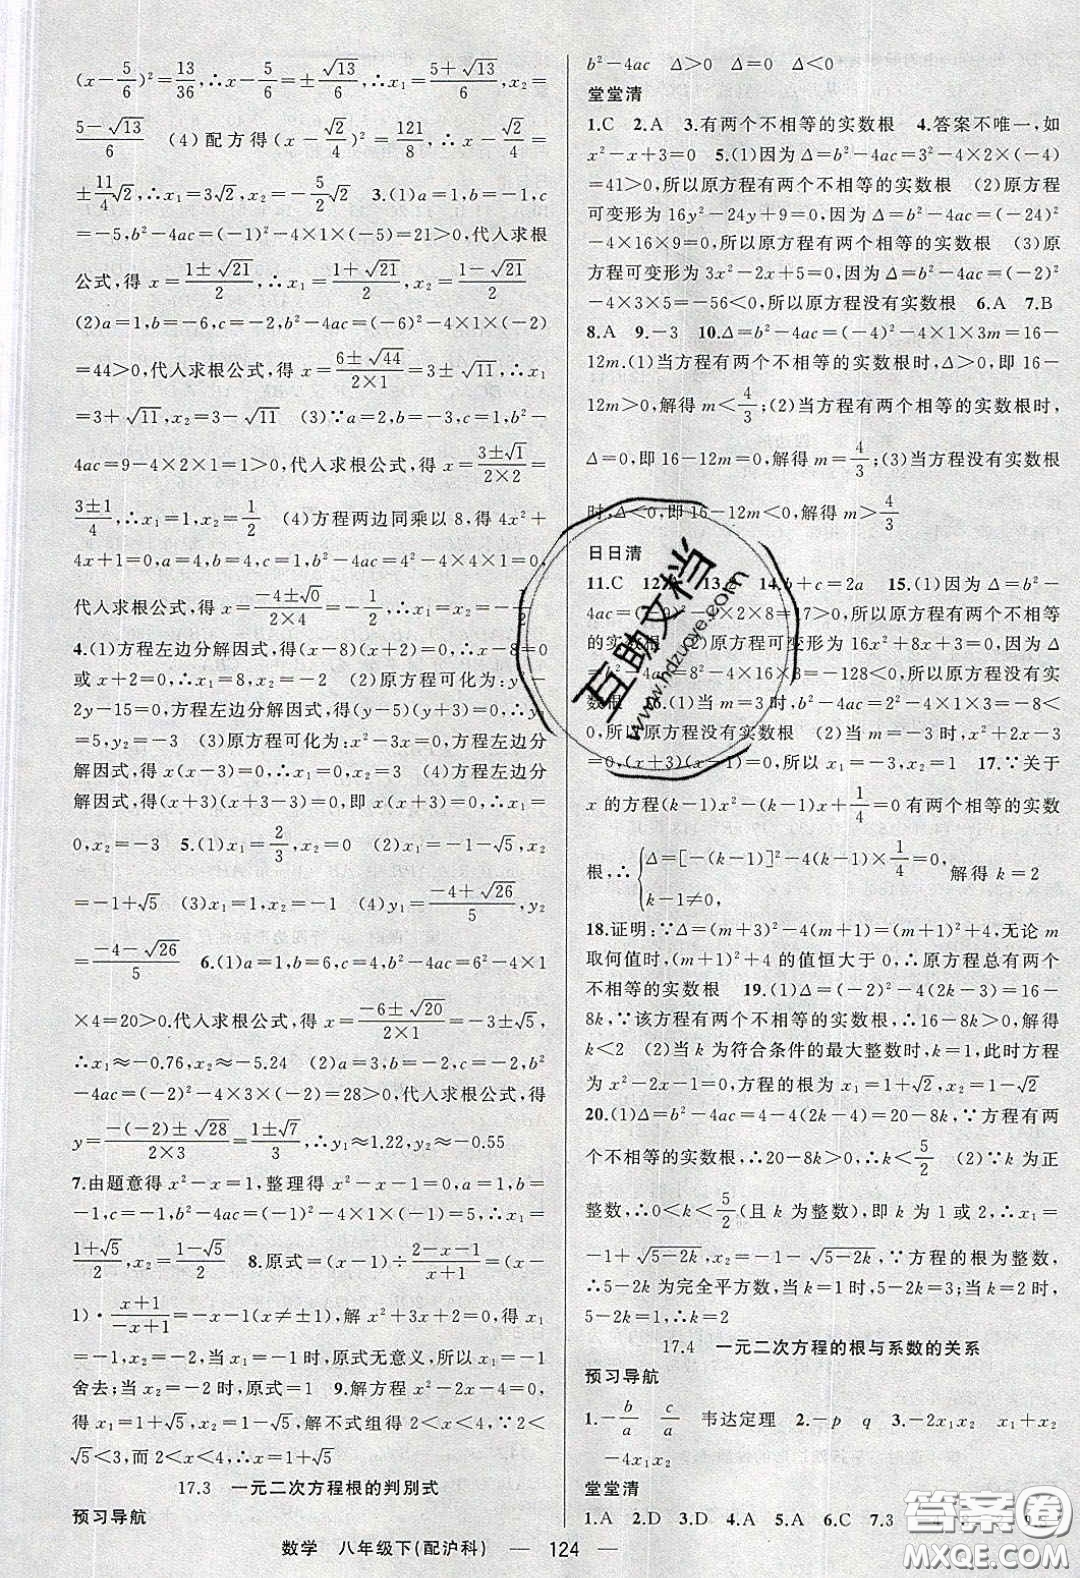 (x-5/6)²=13/36,∴x-5/6=±√13/6,∴x₁=(5+√13)/6,x₂=
(5-√13)/6 (4)配方得(x-√2/4)²=121/8,∴x-√2/4=
±11/4√2,∴x₁=3√2,x₂=-5/2√2 3.(1)a=1,b=-1,c
=-5,b²-4ac=(-1)²-4×1×(-5)=21>0,代入求根
公式,得x=(1±√21)/2,∴x₁=(1+√21)/2,x₂=(1-√21)/2
(2)a=1,b=-6,c=-2,b²-4ac=(-6)²-4×1×(-2)
=44>0,代入求根公式,得x=(6±√44)/(2×1)=3±√11,∴x₁
=3+√11,x₂=3-√11 (3)∵a=2,b=-3,c=1,b²-
4ac=9-4×2×1=1>0,代入求根公式,得x=(3±√1)/(2×2)=
(3±1)/4,∴x₁=1,x₂=1/2 (4)方程两边同乘以8,得4x²+
4x+1=0,∴a=4,b=4,c=1,b²-4ac=4²-4×4×1=0,
代入求根公式,得x=(-4±√0)/(2×4)=-1/2,∴x₁=x₂=-1/2
4.(1)方程左边分解因式,得(x-8)(x+2)=0,∴x-8=0
或x+2=0,∴x₁=8,x₂=-2 (2)原方程可化为:y²-
2y-15=0,方程左边分解因式,得(y-5)(y+3)=0,∴y₁
=5,y₂=-3 (3)原方程可化为:x²-3x=0,左边分解
因式,得x(x-3)=0,∴x₁=0,x₂=3 (4)方程左边分
解因式,得(x+3)(x+3-3)=0,即x(x+3)=0,∴x₁=
0,x₂=-3 5.(1)x₁=2/3,x₂=0 (2)x₁=-1-√5,x₂
=-1+√5 (3)x₁=3,x₂=-1 (4)y₁=(-4+√26)/5,y₂
=(-4-√26)/5 6.(1)a=1,b=6,c=4,b²-4ac=6²-4×1
×4=20>0.代入求根公式,得x=(-6±√20)/(2×1)=-3±√5,
∴x₁≈-0.76,x₂≈-5.24 (2)a=3,b=-2,c=-2,b²-
4ac=(-2)²-4×3×(-2)=28>0,代入求根公式,得
y=(-(-2)±√28)/(2×3)=(1±√7)/3,∴y₁≈1.22,y₂≈-0.55
7.由题意得x²-x=1,整理得x²-x-1=0,∵a=1,b=
-1,c=-1,b²-4ac=(-1)²-4×1×(-1)=5,∴x₁=
(1+√5)/2,x₂=(1-√5)/2 8.原式=(x-1)÷(2-x-1)/(x+1)=(x-
1)·(x+1)/(-x+1)=-x-1(x≠±1),解x²+3x+2=0,得x₁
=-1,x₂=-2,当x₁=-1时,原式无意义,所以x₁=-1
舍去;当x₂=-2时,原式=1 9.解方程x²-2x-4=0,
得x₁=1+√5,x₂=1-√5,解不式组得2<x<4,∵2<
√5<3,而2<x<4,∴x=1+√5
17.3 一元二次方程根的判别式
预习导航
b²-4ac Δ>0 Δ=0 Δ<0
堂堂清
1.C 2.A 3.有两个不相等的实数根 4.答案不唯一,如
x²-x+3=0 5.(1)因为Δ=b²-4ac=3²-4×2×(-4)
=41>0,所以原方程有两个不相等的实数根 (2)原方程
可变形为16y²-24y+9=0,因为Δ=b²-4ac=(-24)²
-4×16×9=0,所以原方程有两个相等的实数根 (3)原
方程可变形为3x²-2x+5=0,因为Δ=b²-4ac=(-2)²
-4×3×5=-56<0,所以原方程没有实数根 6.A 7.B
8.A 9.-3 10.Δ=b²-4ac=(-4)²-4×1×3m=16-
12m.(1)当方程有两个不相等的实数根时,Δ>0,即16-
12m>0,解得m<4/3;(2)当方程有两个相等的实数根时,
Δ=0,即16-12m=0,解得m=4/3;(3)当方程没有实数根
时,Δ<0,即16-12m<0,解得m>4/3
日日清
11.C 14.b+c=2a 15.(1)因为Δ=b²-
4ac=(-9)²-4×2×8=17>0,所以原方程有两个不相等
的实数根 (2)原方程可变形为16x²+8x+3=0,因为Δ=
b²-4ac=8²-4×16×3=-128<0,所以原方程没有实
数根 16.(1)当m=3时,b²-4ac=2²-4×3=-8<
0,所以原方程没有实数根 (2)当m=-3时,x²+2x-3
=0,(x+3)(x-1)=0,所以x₁=-3,x₂=1 17.∵关于
x的方程(k-1)x²-(k-1)x+1/4=0有两个相等的实数
根,∴{Δ=[-(k-1)]²-4(k-1)×1/4=0, 解得k=2
k-1≠0,
18.证明:∵Δ=(m+3)²-4(m+1)=(m+1)²+4,无论m
取何值时,(m+1)²+4的值恒大于0,∴原方程总有两个
不相等的实数根 19.(1)Δ=(-2)²-4(2k-3)=16-
8k,∵该方程有两个不相等的实数根,∴16-8k>0,解得
k<2 (2)当k为符合条件的最大整数时,k=1,此时方程
为x²-2x-1=0,方程的根为x₁=1+√2,x₂=1-√2
20.(1)Δ=b²-4ac=4-4(2k-4)=20-8k,∵方程有两
个不相等的实数根,∴20-8k>0,∴k<5/2 (2)∵k为正
整数,∴0<k<5/2(且k为整数),即k为1或2,∴x₁=
-1+√(5-2k),x₂=-1-√(5-2k),∵方程的根为整数,
∴5-2k为完全平方数,当k=1时,5-2k=3;当k=2时,
5-2k=1,∴k=2
17.4 一元二次方程的根与系数的关系
预习导航
1.-b/a c/a 韦达定理 2.-p q 3.-2x₁x₂ x₁+x₂
-4x₁x₂
堂堂清
1.A 2.D 3.D 4.A 5.A 6.C 7.3
数学 八年级下(配沪科) — 124 —
互助文档
www.hdzuoye.com
答案圈
MXQE.COM